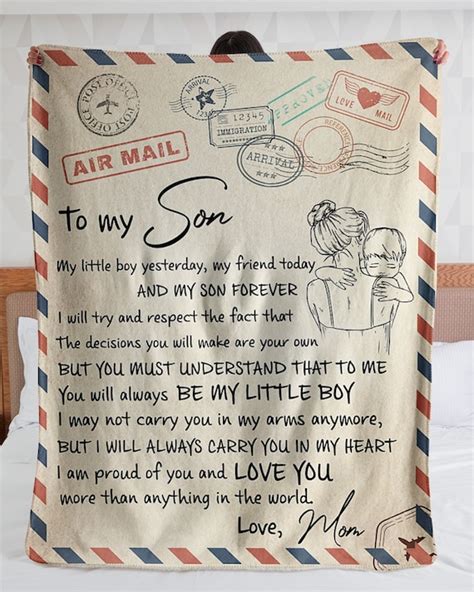 POST OFFICE POST OFFICE
ARRIVAL
12345
IMMIGRATION
APPROVED
LOVE MAIL
AIR MAIL
ARRIVAL
To my Son
My little boy yesterday, my friend today
AND MY SON FOREVER
I will try and respect the fact that
The decisions you will make are your own
BUT YOU MUST UNDERSTAND THAT TO ME
You will always BE MY LITTLE BOY
I may not carry you in my arms anymore,
BUT I WILL ALWAYS CARRY YOU IN MY HEART
I am proud of you and LOVE YOU
more than anything in the world.
Love, Mom